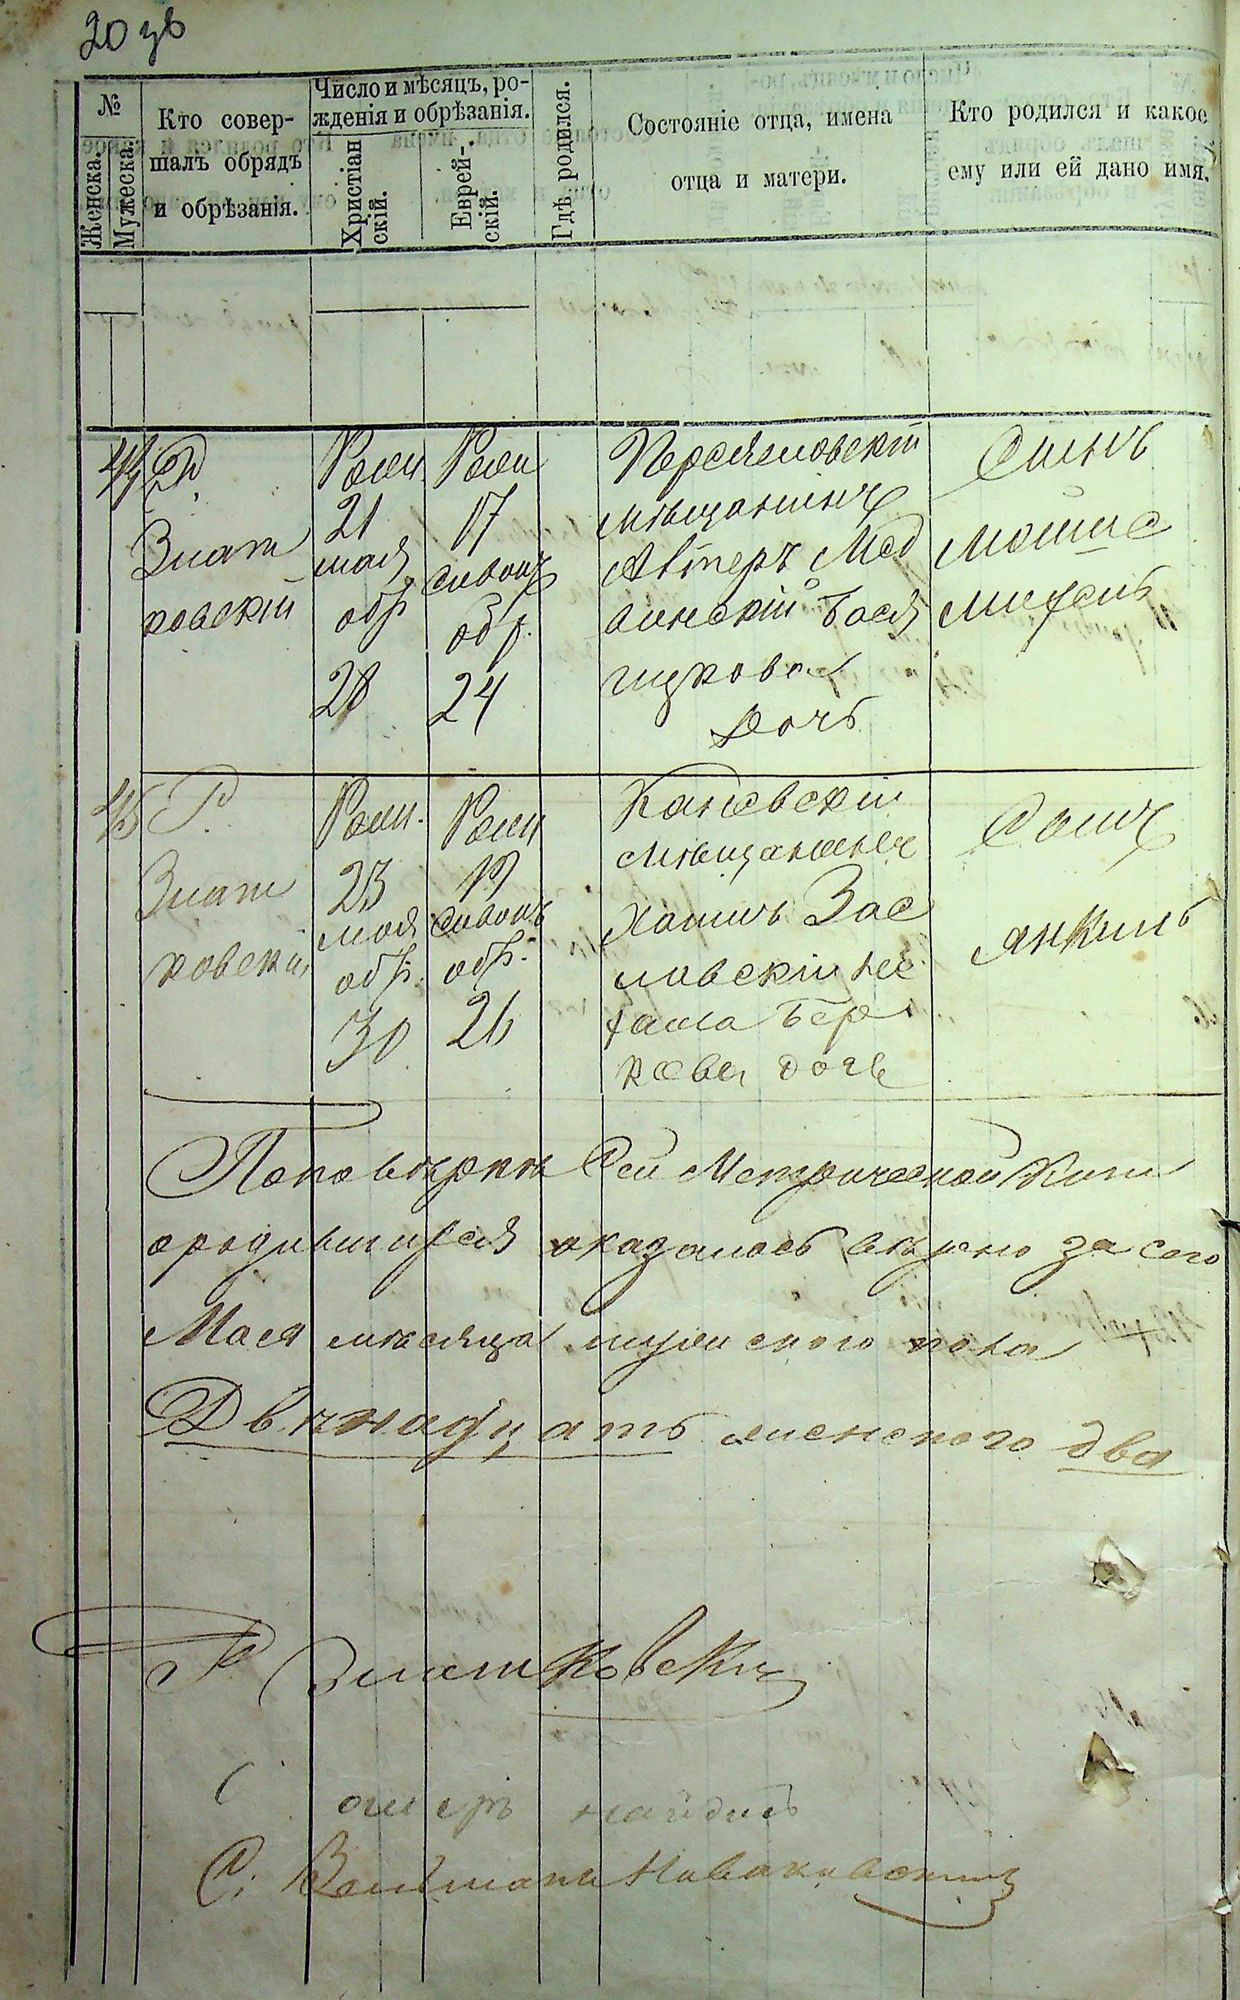 20 зв
№
Женска.
Мужеска.
Кто совер-
шалъ обрядъ
и обрѣзанія.
Число и мѣсяцъ, ро-
жденія и обрѣзанія.
Христіан
скій.
Еврей-
скій.
Гдѣ родился.
Состояніе отца, имена
отца и матери.
Кто родился и какое
ему или ей дано имя.
44
Р.
Злат
ковскій
Роди.
21
мая
обр
28
Роди
17
сивонъ
обр.
24
Переяславскій
мѣщанинъ
Мед
винскій Бася
ицкова
дочь
Сынъ
Мошко
Михель
45
Р.
Злат
ковскій
Роди.
23
мая
обр.
30
Роди
19
сивонъ
обр.
26
Каневскій
мѣщанинъ
Хаимъ Зас
лавскій Не
хама Бер
кова дочь
Сынъ
Янкель
По повѣркѣ сей Метрической Книги
о родившихся оказалось вѣрно за сего
Мая мѣсяца мужеского пола
Двѣнадцать женского два
Р Златковскій
С
Найдис
С: Новаковский